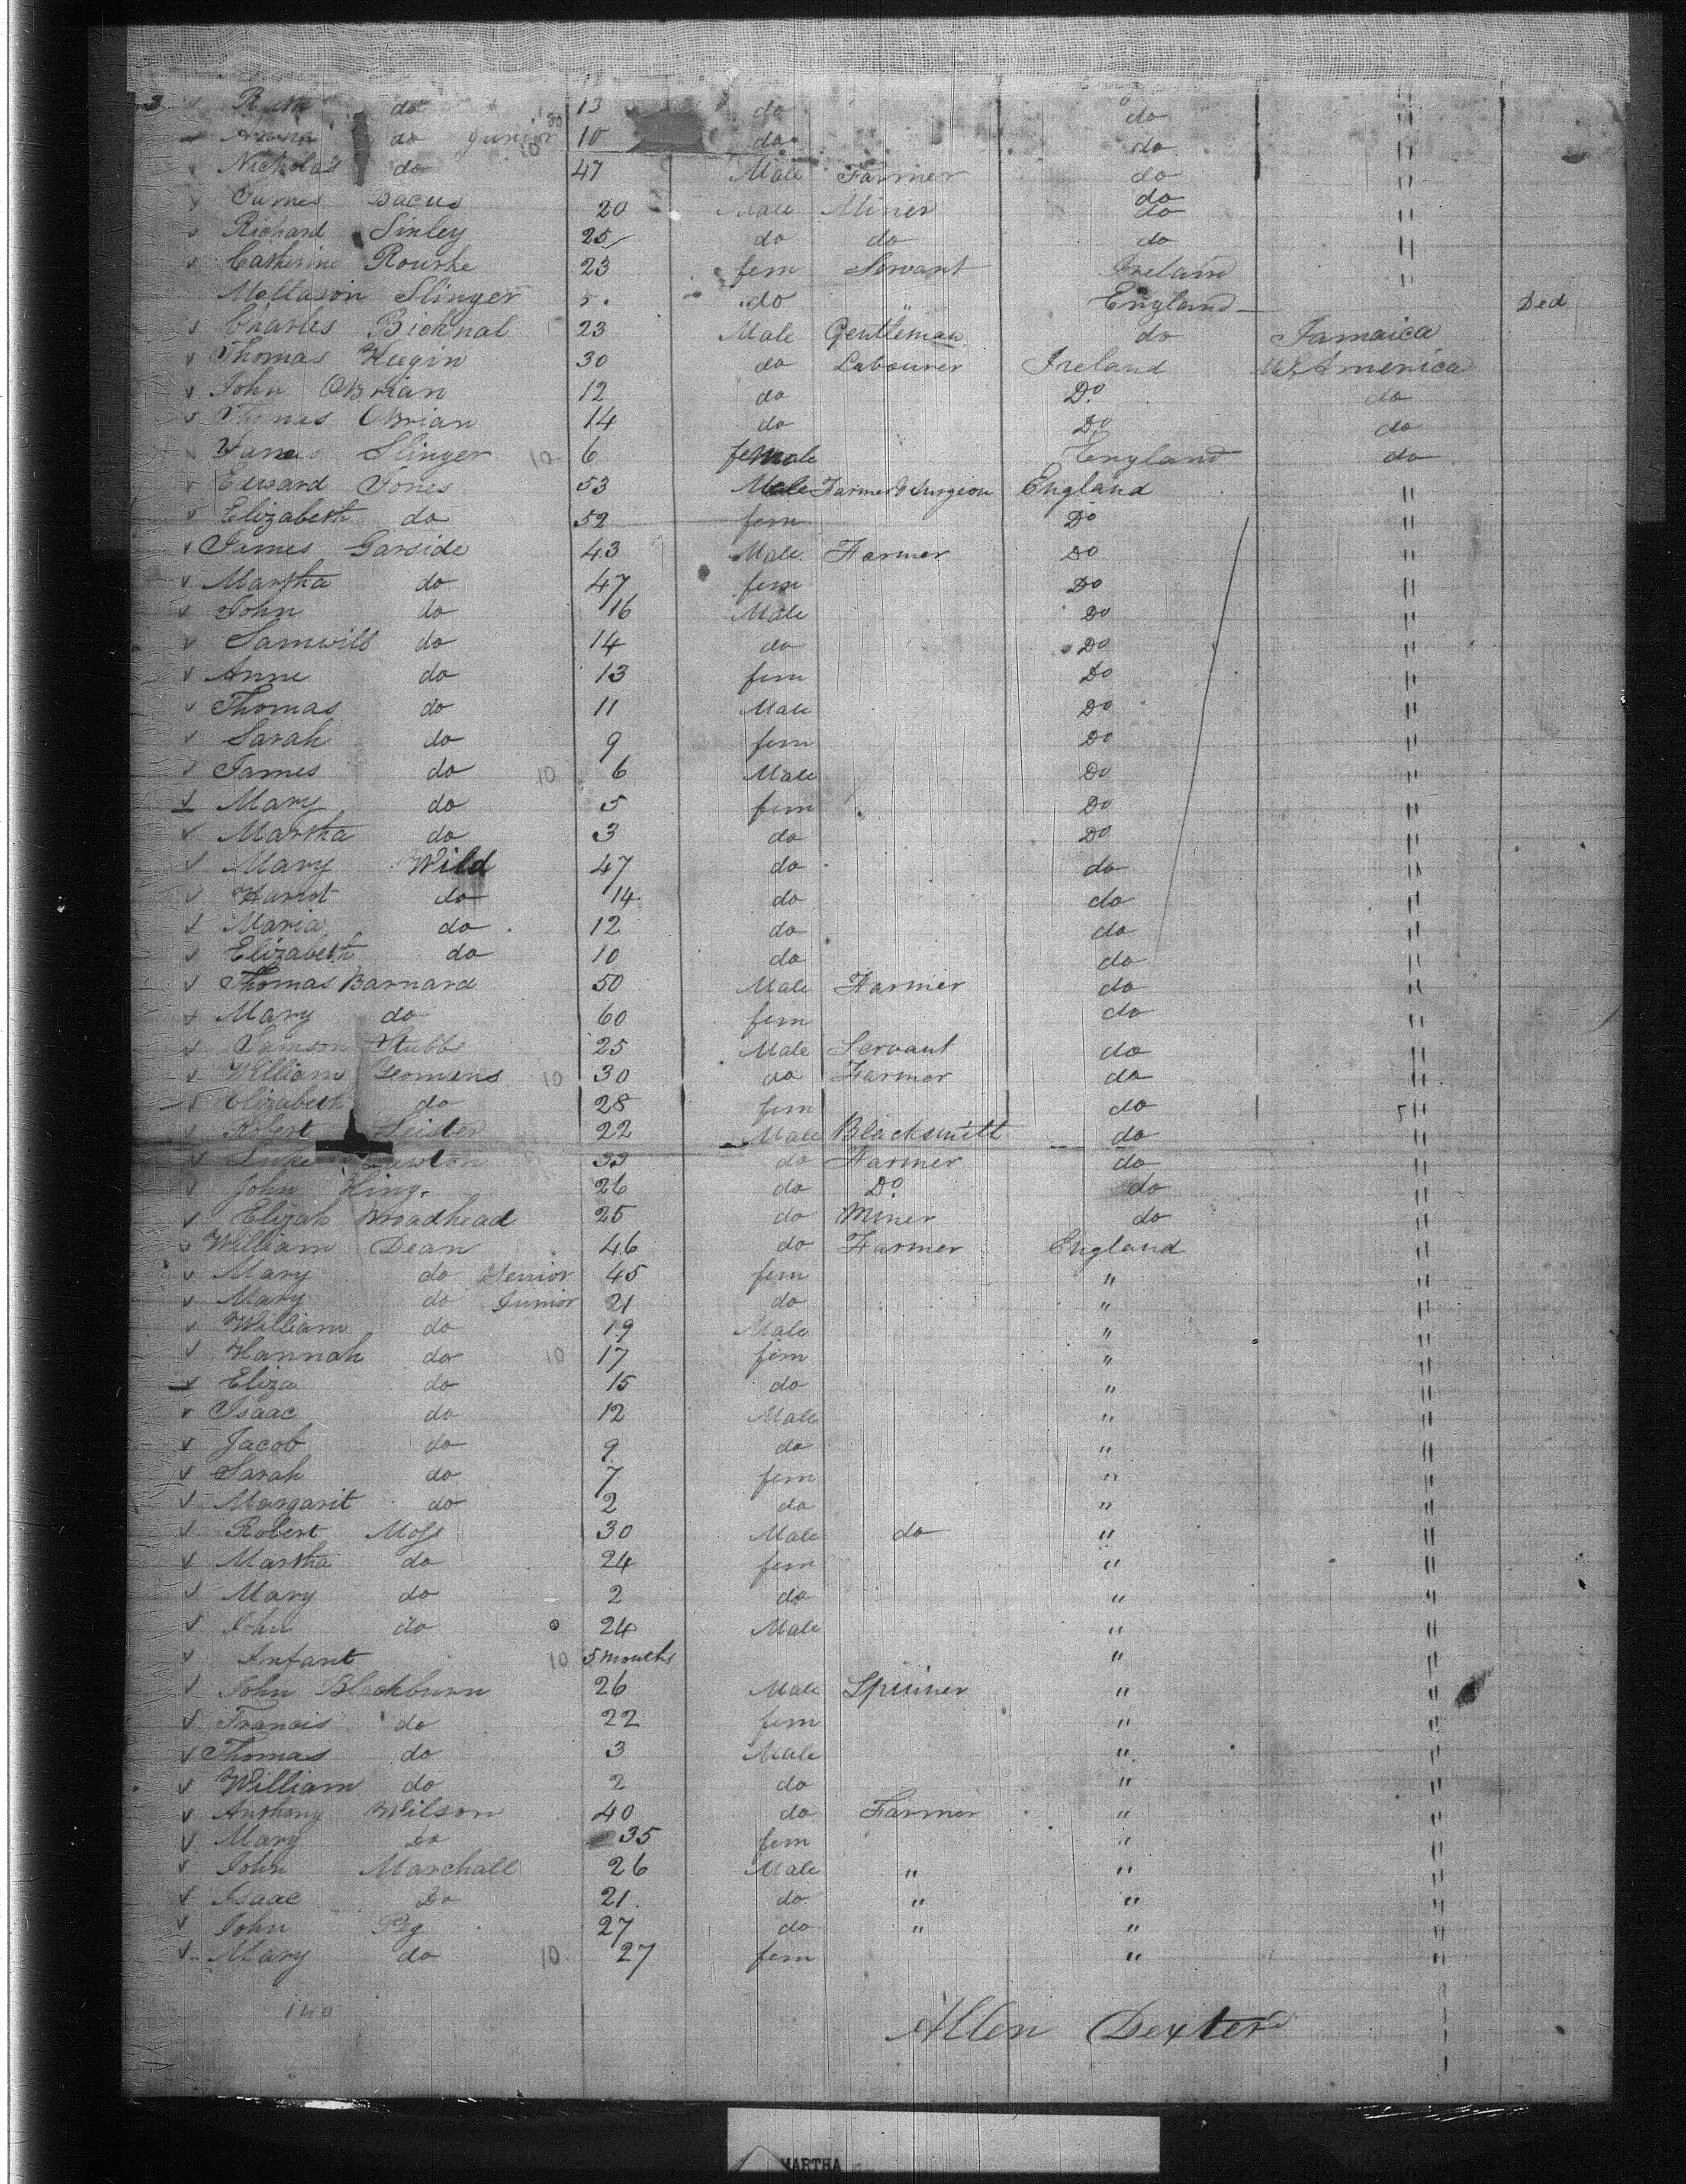 3 Ruth do 13 do do "
do Junior 10 do do "
Nicholas do 47 Male Farmer do "
James Bacus 20 Male Miner do do "
Richard Sinley 25 do do do "
Catherine Rourke 23 fem Servant Ireland "
Mellason Slinger 5 do " England Ded
Charles Bicknal 23 Male Gentleman do Jamaica
Thomas Keegin 30 do Labourer Ireland US America
John OBrian 12 do Do do
Thomas OBrian 14 do Do do
Slinger 10 6 female England do
Edward Jones 53 Male Farmer & Surgeon England "
Elizabeth do 52 fem Do "
James Garside 43 Male Farmer Do "
Martha do 47 fem Do "
John do 16 Male Do "
Samwill do 14 do Do "
Anne do 13 fem Do "
Thomas do 11 Male Do "
Sarah do 9 fem Do "
James do 10 6 Male Do "
Mary do 5 fem Do "
Martha do 3 do Do "
Mary Wild 47 do do "
Harriot do 14 do do "
Maria do 12 do do "
Elizabeth do 10 do do "
Thomas Barnard 50 Male Farmer do "
Mary do 60 fem do "
Samson Stubbs 25 Male Servant do "
William Yeomans 10 30 do Farmer do "
Elizabeth do 28 fem do "
Robert 22 Male Blacksmith do "
Luke Lawton 33 do Farmer do "
John King 26 do Do do "
Elijah Broadhead 25 do Miner do "
William Dean 46 do Farmer England "
Mary do Senior 45 fem " "
Mary do Junior 21 do " "
William do 19 Male " "
Hannah do 10 17 fem " "
Eliza do 15 do " "
Isaac do 12 Male " "
Jacob do 9 do " "
Sarah do 7 fem " "
Margarit do 2 do " "
Robert Moss 30 Male do " "
Martha do 24 fem " "
Mary do 2 do " "
John do 24 Male " "
Infant 10 5 months " "
John Blackburn 26 Male Spinner " "
Francis do 22 fem " "
Thomas do 3 Male " "
William do 2 do " "
Anthony Wilson 40 do Farmer " "
Mary Do 35 fem " "
John Marchall 26 Male " " "
Isaac Do 21 do " " "
John Peg 27 do " " "
Mary do 10 27 fem " "
140
Allen Dexter
MARTHA